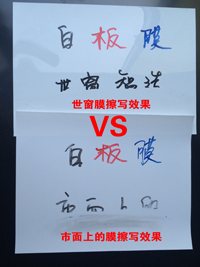 白板膜
世窗 短法
世窗膜擦写效果
VS
白板膜
市面上的
市面上的膜擦写效果